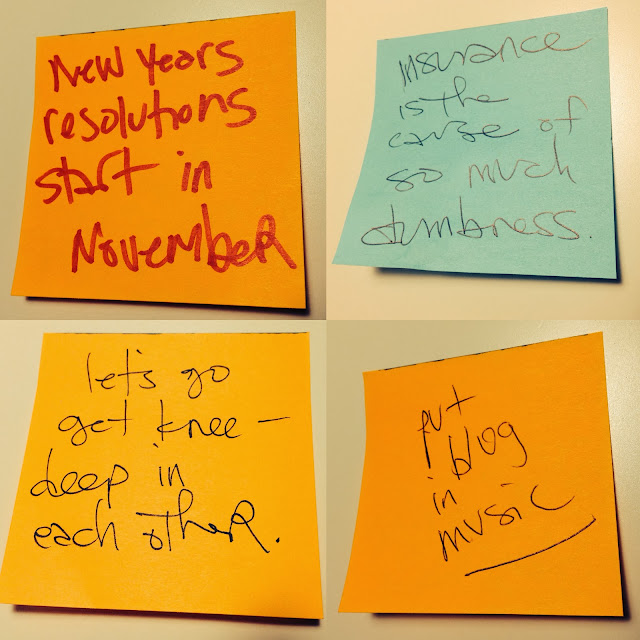 New Years
resolutions
start in
November
insurance
is the
cause of
so much
dumbness.
let's go
get knee-
deep in
each other.
put
blog
in
music